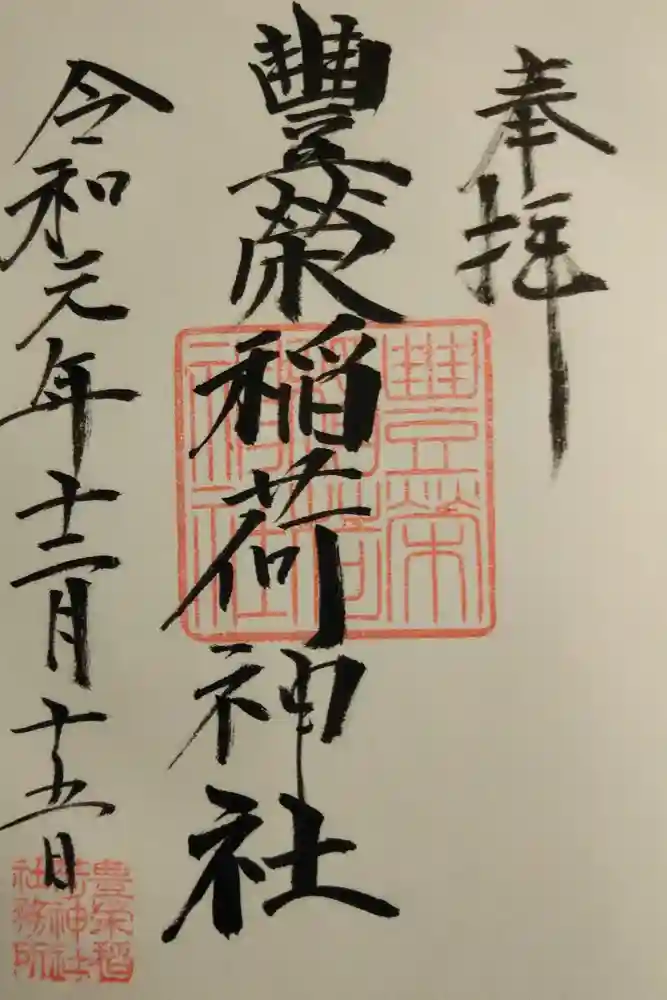 奉拝
豐榮稲荷神社
豐榮稲荷神社
令和元年十二月十五日
豊栄稲荷神社社務所